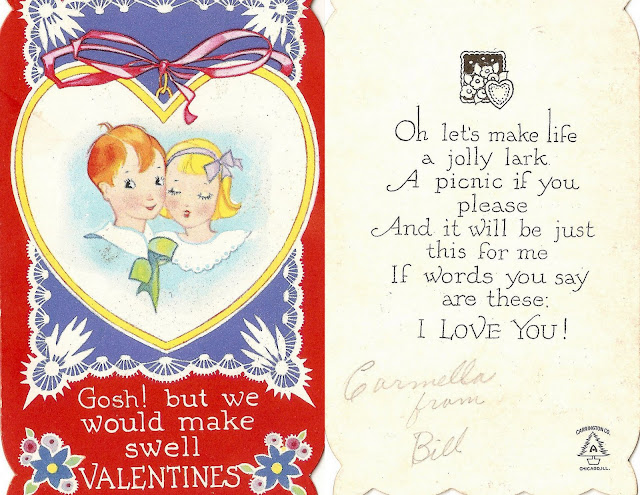 Gosh! but we
would make
swell
VALENTINES
Oh let's make life
a jolly lark
A picnic if you
please
And it will be just
this for me
If words you say
are these:
I LOVE YOU!
Carmella
from
Bill
CARRINGTON CO.
A
CHICAGO, ILL.